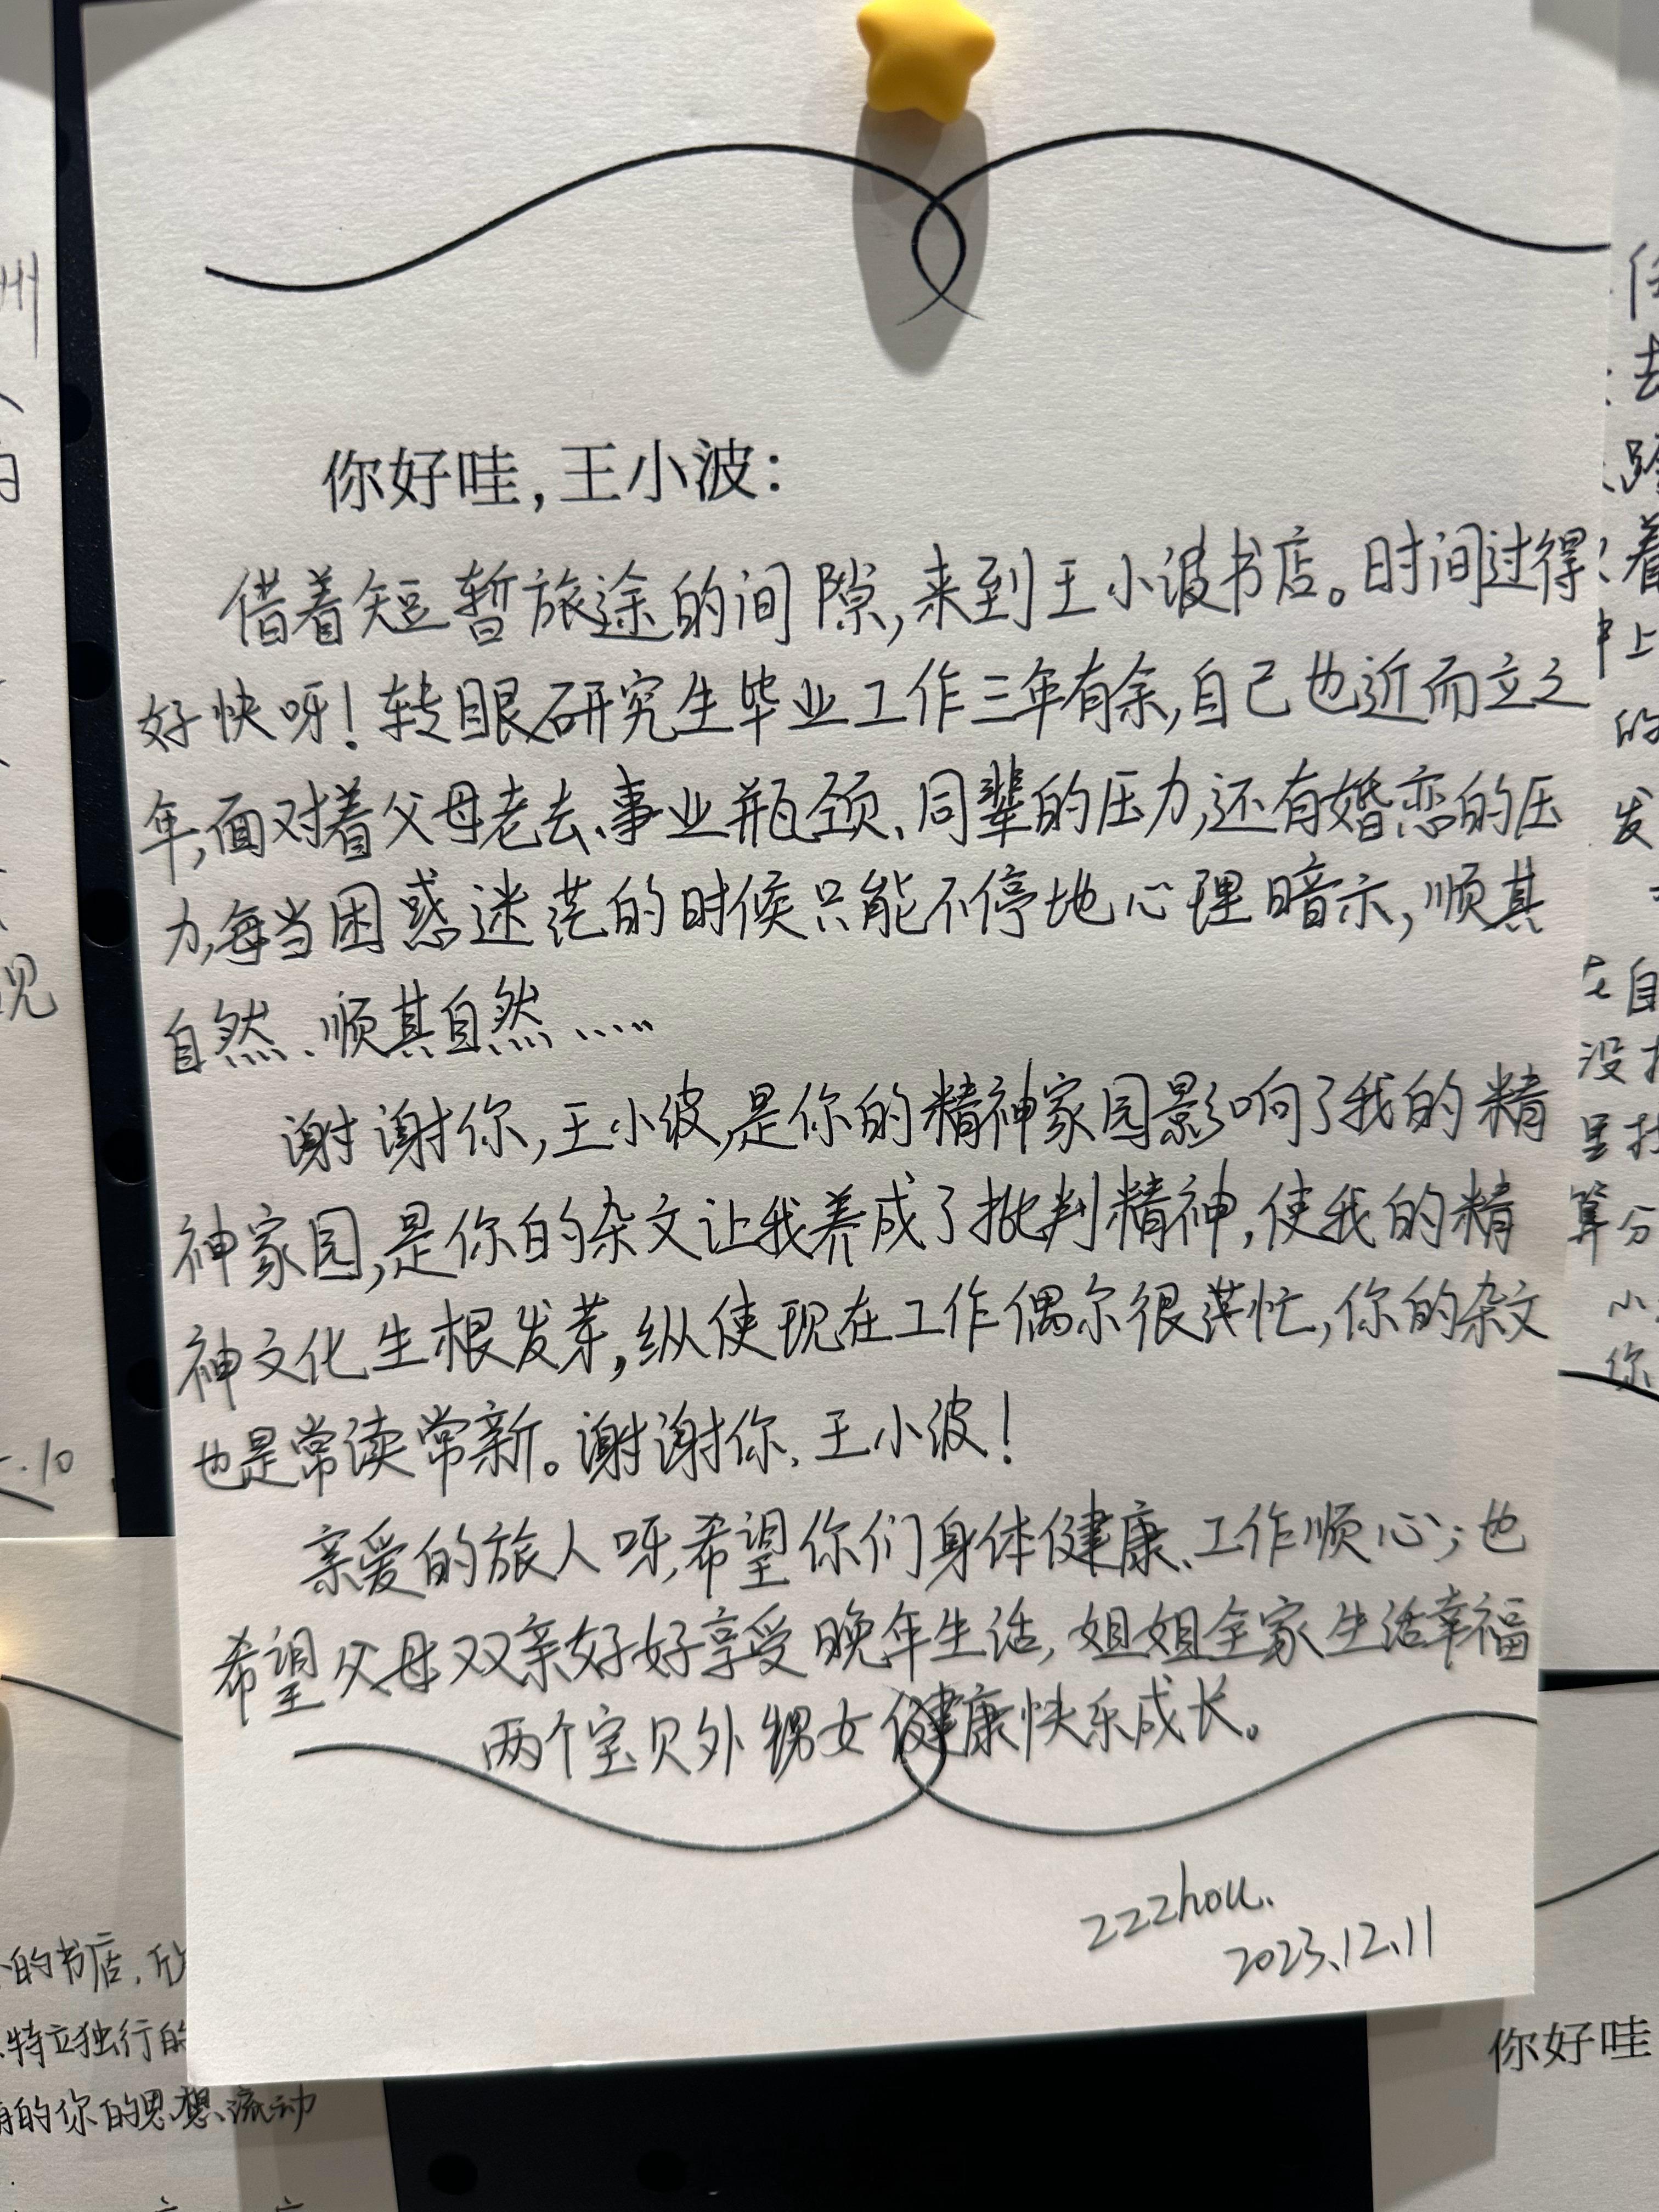 你好哇,王小波:
借着短暂旅途的间隙,来到王小波书店。时间过得
好快呀!转眼研究生毕业工作三年有余,自己也近而立之
年,面对着父母老去、事业瓶颈、同辈的压力,还有婚恋的压
力,每当困惑迷茫的时候只能不停地心理暗示,顺其
自然、顺其自然……
谢谢你,王小波,是你的精神家园影响了我的精
神家园,是你的杂文让我养成了批判精神,使我的精
神文化生根发芽,纵使现在工作偶尔很茫忙,你的杂文
也是常读常新。谢谢你、王小波!
亲爱的旅人呀,希望你们身体健康、工作顺心;也
希望父母双亲好好享受晚年生活,姐姐全家生活幸福
两个宝贝外甥女健康快乐成长。
zzzhou.
2023.12.11
州
见
.10
的书店,
特立独行的
的你的思想、流动
去
着
上
的
发
在自
没
里
算分
小
你
你好哇